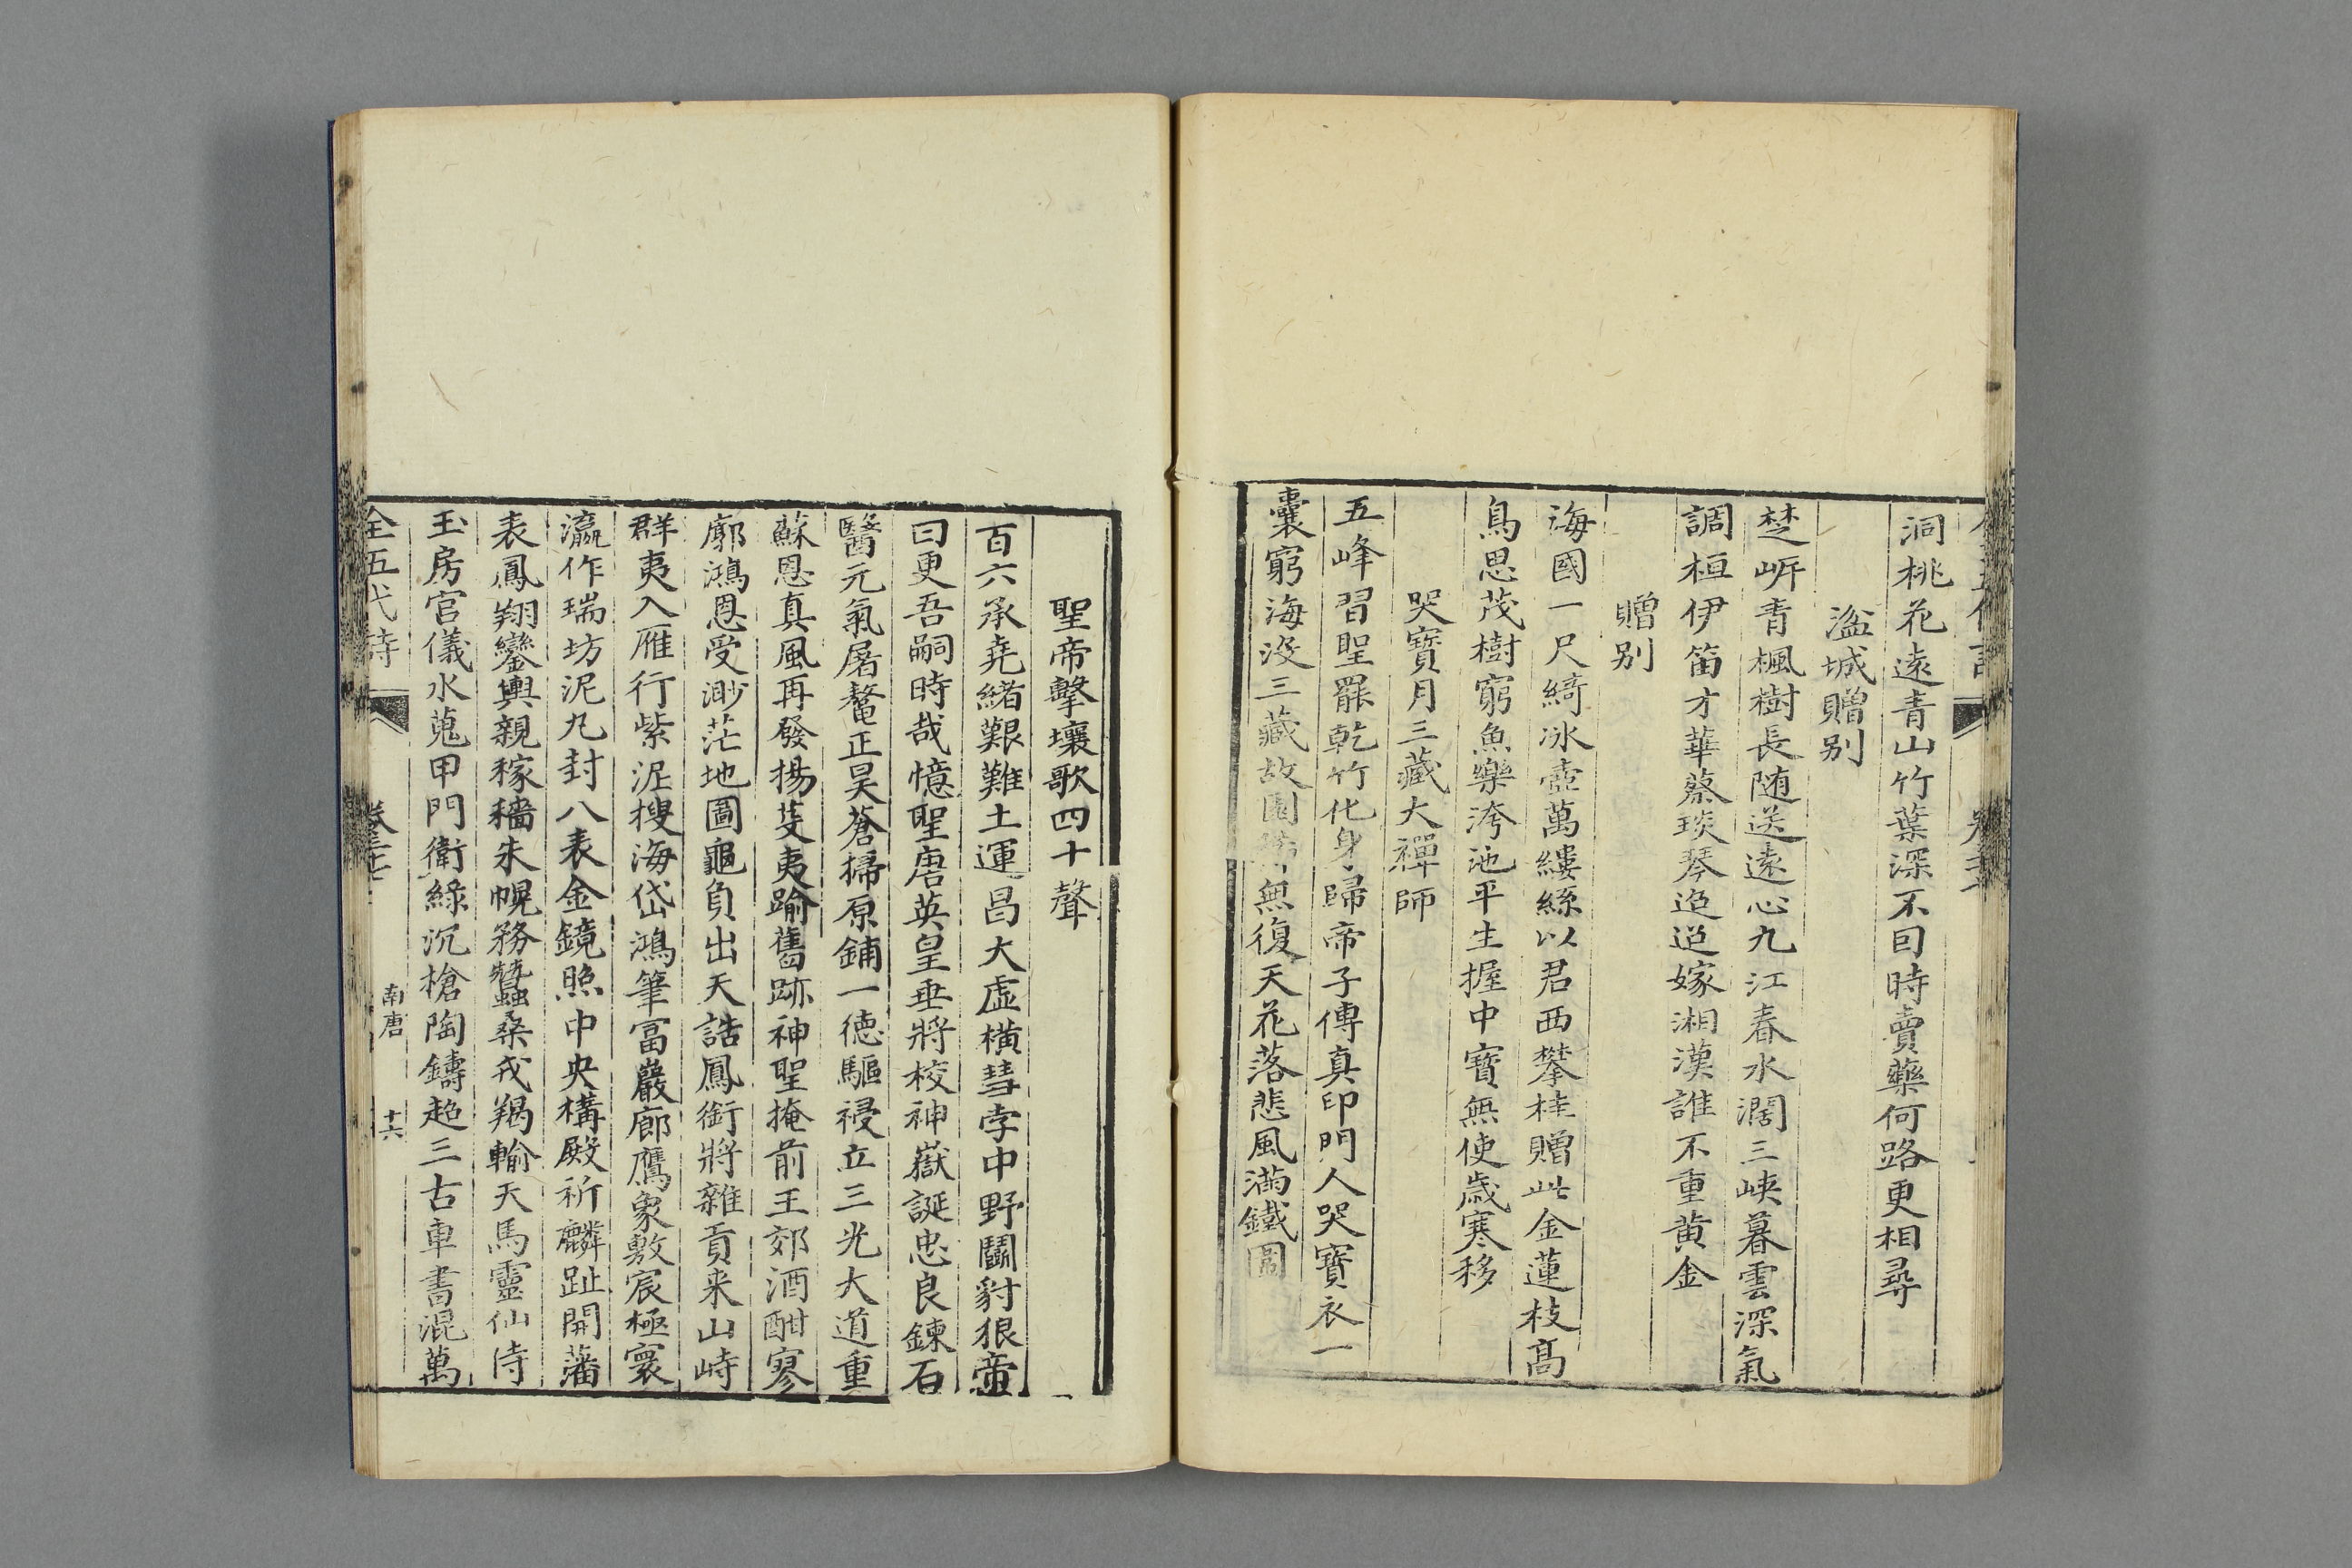 洞桃花遠青山竹葉深不回時賣藥何路更相尋
湓城贈别
楚岍青楓樹長随送遠心九江春水濶三峡暮雲深氣
調桓伊笛才華蔡琰琴迢迢嫁湘漢誰不重黄金
贈别
海國一尺綺冰壺萬縷絲以君西攀桂贈此金蓮枝髙
鳥思茂樹窮魚樂洿池平生握中寳無使歳寒移
哭寳月三藏大禪師
五峰習聖罷乾竹化身歸帝子傳真印門人哭寳衣一
囊窮海没三藏故園無復天花落悲風满鐵圍
聖帝擊壤歌四十聲
百六承堯緒艱難土運昌大虚横彗孛中野鬭豺狼帝
曰更吾嗣時哉憶聖唐英皇垂將校神嶽誕忠良鍊石
醫元氣屠鼇正昊蒼掃原鋪一徳驅祲立三光大道重
蘇恩真風再發揚芟夷踰舊跡神聖掩前王郊酒酣寥
廓鴻恩受渺茫地圖龜負出天誥鳳銜將雜貢来山峙
群夷入雁行紫泥搜海岱鴻筆冨巖廊鷹象敷宸極寰
瀛作瑞坊泥丸封八表金鏡照中央構殿祈麟趾開藩
表鳳翔鑾輿親稼穡朱幌務蠶桑戎羯輸天馬靈仙侍
玉房宫儀水蒐甲門衛綠沉槍陶鑄超三古車書混萬
全五代詩 南唐 十六